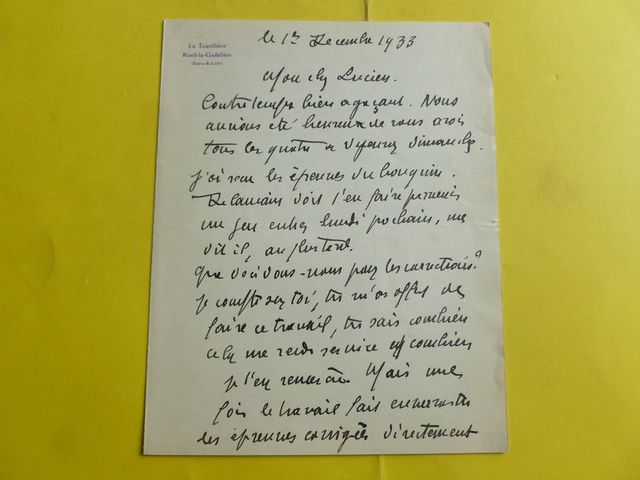 La Tourillière
Nuzil-la-Gadelière
(Eure-&-Loir)
le 1er Decembre 1933
Mon cher Lucien.
Contretemps bien agaçant. Nous
aurions été heureux de vous avoir
tous les quatre a dejeuner dimanche.
J'ai reçu les épreuves du bouquin.
Delamain doit t'en faire parvenir
un jeu entier lundi prochain, me
dit il, au plus tard.
Que decidons-nous pour les corrections?
Je compte sur toi, tu m'as offert de
faire ce travail, tu sais combien
cela me rends service et combien
je t'en remercie. Mais une
fois le travail fait enverras tu
les épreuves corrigées directement